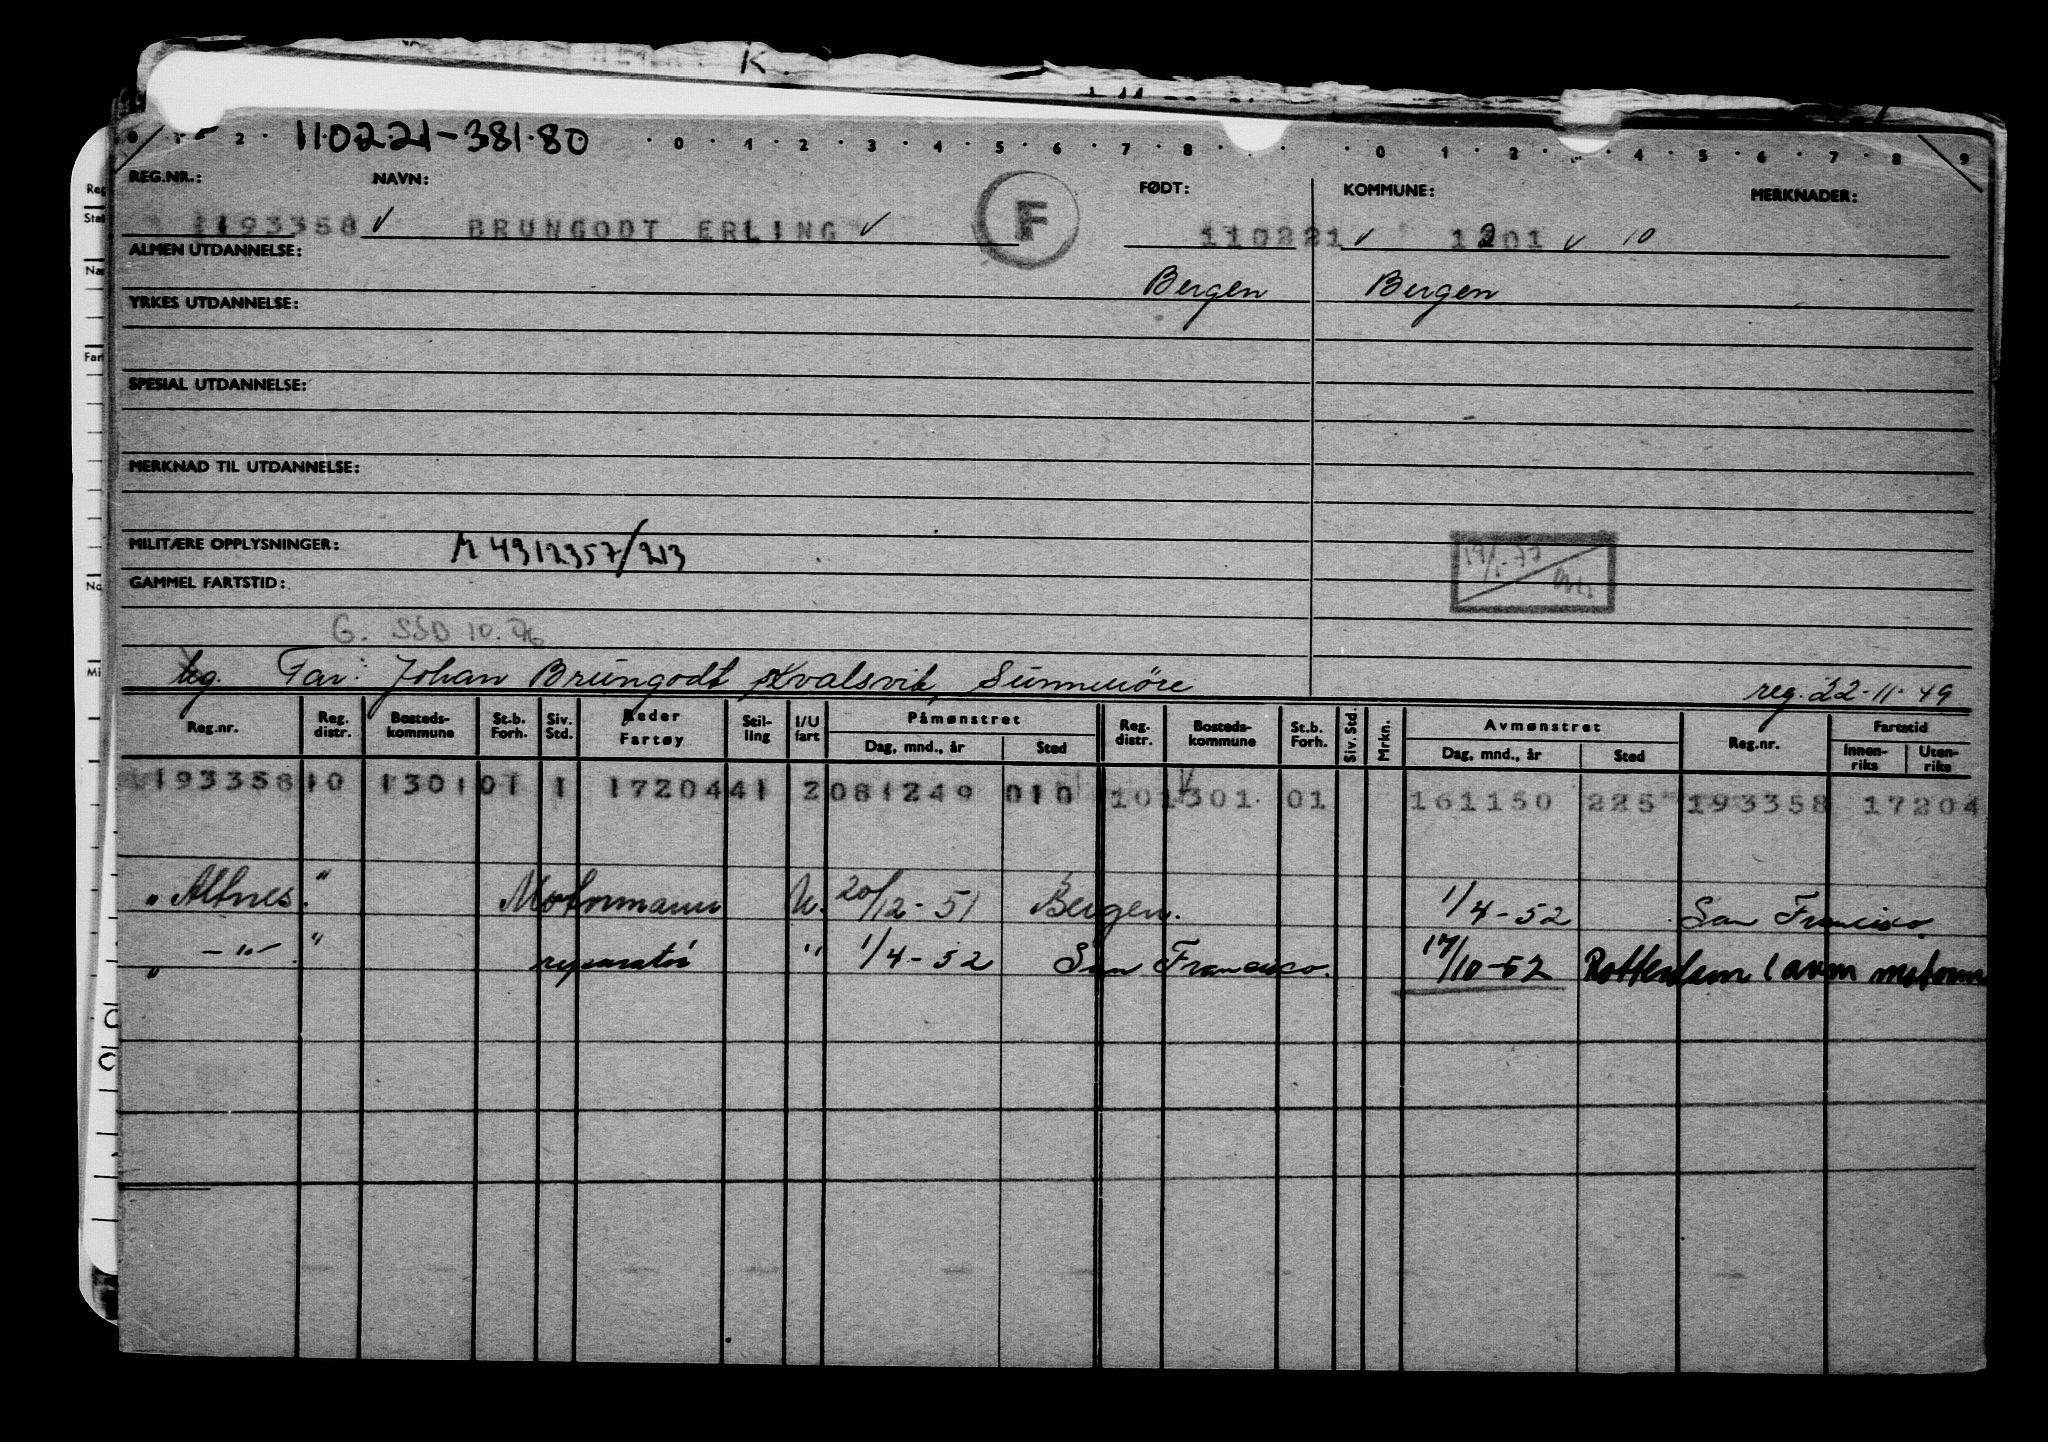 K.
0 1 2 11.02.21-381.80 0 1 2 3 4 5 6 7 8 0 1 2 4 5 6 7 8 9
REG.NR.: NAVN: FØDT: KOMMUNE: MERKNADER:
1193358 v BRUNGODT ERLING v F 110221 v 1201 v 10
ALMEN UTDANNELSE:
Bergen Bergen
YRKES UTDANNELSE:
SPESIAL UTDANNELSE:
MERKNAD TIL UTDANNELSE:
MILITÆRE OPPLYSNINGER: M 4312357/213
GAMMEL FARTSTID:
G. SSD 10.76
Ug. Far: Johan Brungodt Kvalsvik, Sunnmöre reg. 22-11-49
Reg.nr. Reg. distr. Bosteds-kommune St.b. Forh. Siv. Std. Reder Fartøy Stil-ling I/U fart Påmønstret Dag, mnd., år Sted Reg. distr. Bosteds-kommune St.b. Forh. Siv. Std. Mrkn. Avmønstret Dag, mnd., år Sted Reg.nr. Fartstid Innen-riks Uten-riks
193358 10 1301 01 1 17204 41 2 081249 010 10 1301 01 161150 225 193358 17204
" Altnes. " Motormann U. 20/12-51 Bergen. 1/4-52 San Francisco.
" -"- " reparatör " 1/4-52 San Francisco. 17/10-52 Rotterdam (avm motorm